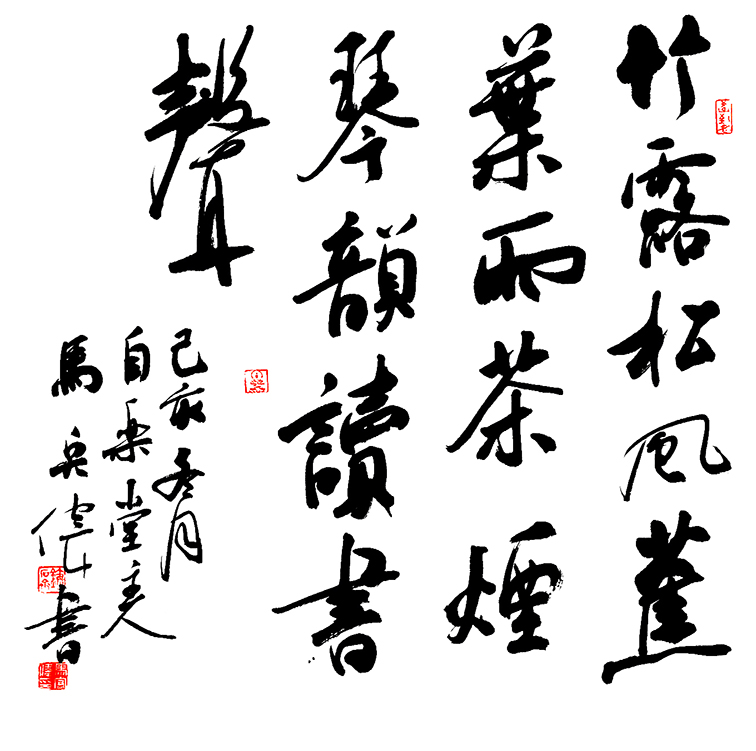 竹露松風蕉
葉雨茶煙
琴韻讀書
聲
己亥冬月
自樂堂主人
馬兵偉書